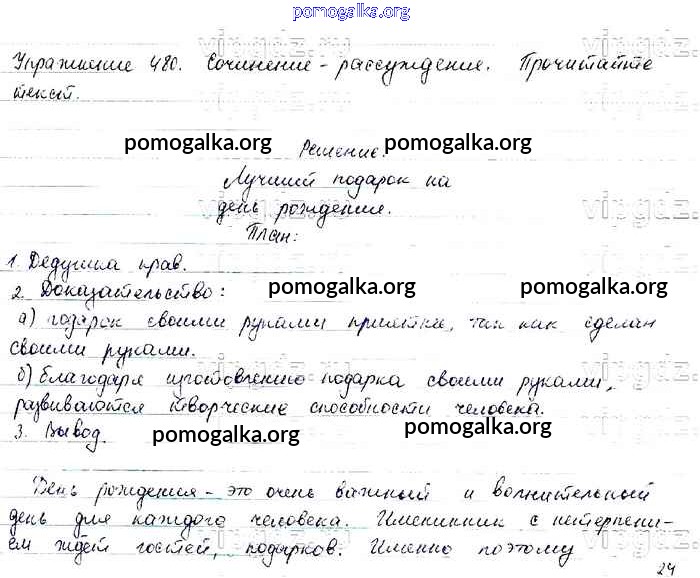 pomogalka.org
Упражнение 480. Сочинение - рассуждение. Прочитайте
текст.
pomogalka.org Решение. pomogalka.org
Лучший подарок на
день рождения.
План:
1. Дедушка прав.
2. Доказательство: pomogalka.org pomogalka.org
а) подарок своими руками приятнее, так как сделан
своими руками.
б) благодаря изготовлению подарка своими руками,
развиваются творческие способности человека.
3. Вывод. pomogalka.org pomogalka.org
День рождения - это очень важный и волнительный
день для каждого человека. Именинник с нетерпени-
ем ждёт гостей, подарков. Именно поэтому
24